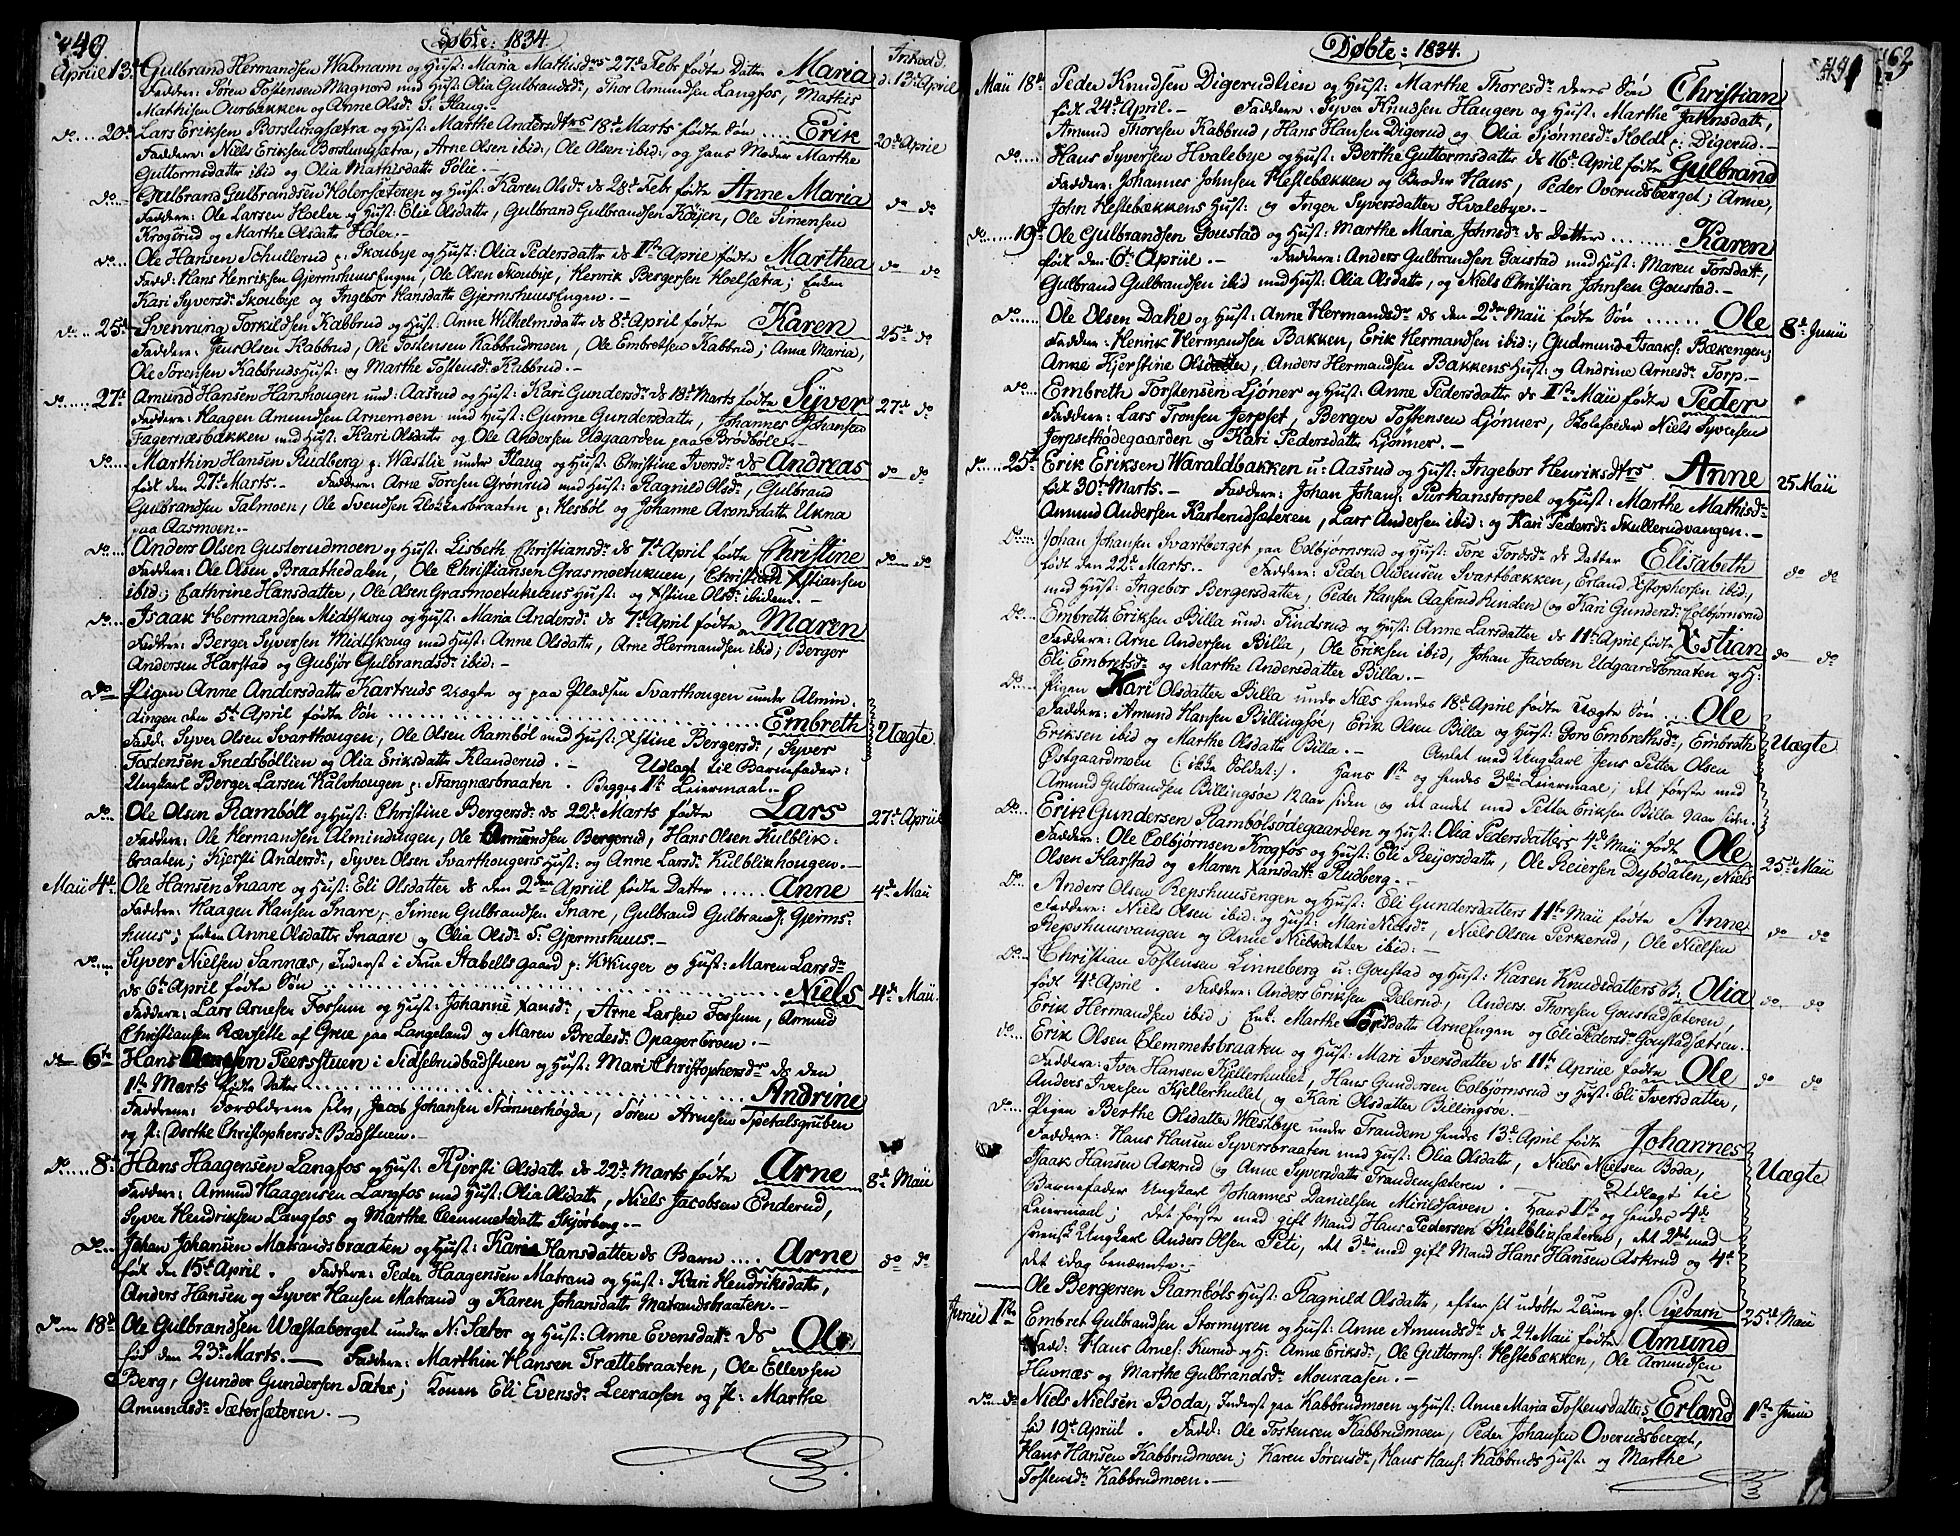 440
Døbte: 1834.
Introd.
April 13de Gulbrand Hermandsen Walmann og Hust: Maria Mathisdrs 27de Febr fødte Datter Maria d. 13de April
Faddere: Søren Tostensen Magnord med Hust: Olia Gulbrandsdr, Thor Amundsen Langfos, Mathis
Mathisen Ourbakken og Anne Olsdr S. Haug.-
do .... 20de Lars Eriksen Borslungsætra og Hust: Marthe Andersdtrs 18de Marts fødte Søn .... Erik 20de April
Faddere: Niels Eriksen Borslungsætra, Arne Olsen ibid:, Ole Olsen ibid:, og hans Moder Marthe
Guttormsdatter ibid og Olia Mathisdatter Solie.-
do.... Gulbrand Gulbrandsen Holersæteren og Hust: Karen Olsdr ds 28de Febr fødte Anne Maria do — do
Faddere: Ole Larsen Hoeler og Hust: Elie Olsdatter, Gulbrand Gulbrandsen Køijen, Ole Simensen
Krogsrud og Marthe Olsdatter Holer.-
do.... Ole Hansen Schullerud p: Skoubye og Hust: Olia Pedersdatter ds 1ste April fødte Marthea do — do
Fadd: Hans Henriksen GjermshuusEngen, Ole Olsen Skoubye, Henrik Bergersen Hoelsætra; Enken
Kari Syversdr Skoubye og Ingebor Hansdatter GjermshuusEngen.-
do... 25de Svenning Torkildsen Kabbrud og Hust: Anne Wilhelmsdatter ds 8de April fødte Karen 25de do
Faddere: Jens Olsen Kabbrud, Ole Tostensen Kabbrudmoen, Ole Embretsen Kabbrud; Anne Maria,
Ole Sørensen Kabbruds Hust: og Marthe Tostensdr Kabbrud.-
do ..... 27de Amund Hansen Hanshougen und: Aasrud og Hust: Kari Gundersdr ds 18de Marts fødte Syver 27de do
Faddere: Haagen Amundsen Arnemoen med Hust: Gunne Gundersdatter, Johannes Johansen
Fagernæsbækken med Hust: Kari Olsdatter og Ole Andersen Eldgaarden paa Brødbøle.-
do.... Marthin Hansen Rudberg p: Wæstlie under Haug og Hust: Christine Iversdr ds Andreas do — do
født den 27de Marts.- Faddere: Arne Toresen Grønrud med Hust: Ragnild Olsdr, Gulbrand
Gulbrandsen Talmoen, Ole Svendsen Klokkerbraaten p: Hesbøl og Johanne Aronsdatter Ukna
paa Aasmoen.-
do... Anders Olsen Gusterudmoen og Hust: Lisbeth Christiansdr ds 7de April fødte Christine do — do
Faddere: Ole Olsen Braathedalen, Ole Christiansen Grasmoetukuen, Christian Xstiansen
ibid; Cathrine Hansdatter, Ole Olsen Grasmoetukuens Hust: og Xstine Olsdr: ibidem.-
do.... Isaak Hermandsen Midtskoug og Hust: Maria Andersdr ds 7de April fødte Maren
Faddere: Berger Syversen Midtskoug med Hust: Anne Olsdatter, Arne Hermandsen ibid; Berger
Andersen Harstad og Gubjør Gulbrandsdr ibid:-
do — Pigen Anne Andersdatter Kartruds uægte og paa Pladsen Svarthougen under Almin:
dingen den 5te April fødte Søn ..... Embreth Uægte
Fadd: Syver Olsen Svarthougen, Ole Olsen Rambøl med Hust: Xstine Bergersdr, Syver
Tostensen Snedsbøllien og Olia Eriksdatter Klanderud.- Udlagt til Barnefader:
Ungkarl Berger Larsen Kalvhougen p: Stangnæsbraaten. Begges 1ste Leiermaal.-
do... Ole Olsen Rambøll og Hust: Christine Bergersdr ds 22de Marts fødte Lars 27de April
Faddere: Ole Hermandsen Almindingen, Ole Amundsen Bergerud, Hans Olsen Kulblik:
braaten; Kjersti Andersdr, Syver Olsen Svarthougens Hust: og Anne Larsdr Kulblikhougen.-
Maii 4de Ole Hansen Snaare og Hust: Eli Olsdatter ds den 2den April fødte Datter ..... Anne 4de Maii
Faddere: Haagen Hansen Snare, Simen Gulbrandsen Snare, Gulbrand Gulbrands: Gjerms:
huus; Enken Anne Olsdatter Snaare og Olia Olsdr S: Gjermshuus.-
do... Syver Nielsen Sannæs, Inderst i Frue Stabells Gaard p: Kvinger og Hust: Maren Larsdr
ds 6te April fødte Søn ..... Niels 4de Maii.
Faddere: Lars Arnesen Fossum og Hust: Johanne Xansdr, Arne Larsen Fossum, Amund
Christiansen Rævfelle af Grue paa Langeland og Maren Bredesdr Opagerbroen.-
do — 6te Hans Peersstuen i Sidselrudbadstuen og Hust: Mari Christophersdr ds den
1ste Marts fødte Datter ..... Andrine
Faddrene: Forældrene selv, Jacob Johansen Stønnerhøgda, Søren Arnesen Spetalsgruben
og P: Dorthe Christophersdr Badstuen.-
do .... 8de Hans Haagensen Langfos og Hust: Kjersti Olsdatter ds 22de Marts fødte Arne 8de Maii
Faddere: Amund Haagensen Langfos med Hust: Olia Olsdatter, Niels Jacobsen Enderud,
Syver Hendriksen Langfos og Marthe Clemmetsdatter Skjørberg.-
do.... Johan Johansen Matrandsbraaten og Hust: Kari Hansdatter ds Barn .... Arne do do
født den 15de April. Faddere: Peder Haagensen Matrand og Hust: Kari Hendriksdatter,
Anders Hansen og Syver Hansen Matrand og Karen Johansdatter Matrandsbraaten.-
do 18de Ole Gulbrandsen Wæstaberget under N. Sæter og Hust: Anne Evensdatter ds Ole
fød den 23de Marts.- Faddere: Marthin Hansen Trættebraaten, Ole Ellevsen
Berg, Gunder Gundersen Sæter; Konen Eli Evensdr Leeraasen og P: Marthe
Amundsdr Sætersæteren.-
Døbte: 1834.
441
Maii 18de Peder Knudsen Digerudlien og Hust: Marthe Thoresdr deres Søn Christian
født 24de April.- Faddere: Syver Knudsen Haugen og Hust: Marthe Jahnsdatter,
Amund Thoresen Kabbrud, Hans Hansen Digerud og Olia Sjønnesdr Holdt p: Digerud.-
do.... Hans Syversen Hvalebye og Hust: Berthe Guttormsdatter ds 16de April fødte Gulbrand
Faddere: Johannes Johnsen Heftebækken og Broder Hans, Peder Overudsberget; Anne,
John Heftebækkens Hust: og Inger Syversdatter Hvalebye.-
do..... 19de Ole Gulbrandsen Goustad og Hust: Marthe Maria Johnsdr ds Datter ....... Karen
født den 6te April.- Faddere: Anders Gulbrandsen Goustad med Hust: Maren Torsdatter,
Gulbrand Gulbrandsen ibid med Hust: Olia Olsdatter, og Niels Christian Johnsen Goustad.-
do.... Ole Olsen Dahle og Hust: Anne Hermandsdr ds den 2den Maii fødte Søn ...... Ole 8de Junii
Faddere: Henrik Hermandsen Bakken, Erik Hermandsen ibid:, Gudmund Isaaks: Bækengen;
Anne Kjerstine Olsdatter, Anders Hermandsen Bakkens Hust: og Andrine Arnesdr Torp.-
do... Embreth Torstensen Ljöner og Hust: Anne Pedersdatter ds 1ste Maii fødte Peder
Faddere: Lars Tronsen Jerpset, Berger Tostensen Ljönner, Skoleholder Niels Syversen
Jerpsethødegaarden og Kari Pedersdatter Ljönner.-
do .... 25de Erik Eriksen Waraldbakken u: Aasrud og Hust: Ingebor Henriksdtrs Anne 25 Maii
født 30te Marts.- Faddere: Johan Johans: Purkanstorpet og Hust: Marthe Mathisdr
Amund Andersen Karterudsæteren, Lars Andersen ibid: og Kari Pedersdr Skullerudvangen.-
Do.... Johan Johansen Svartberget paa Colbjørnsrud og Hust: Tore Tordsdr ds Datter Elisabeth do do
født den 22de Marts. Faddere: Peder Oldensen Svartbækken, Erland Xstophersen ibid,
med Hust: Ingebor Bergersdatter, Peder Hansen Aaserud Linden og Kari Gundersdr Colbjørnsrud
Do... Embreth Eriksen Billa und: Findsrud og Hust: Anne Larsdatter ds 11te April fødte Xstian do — do
Faddere: Arne Andersen Billa, Ole Eriksen ibid, Johan Jacobsen Eldgaardsbraaten og H:
Eli Embretsdr og Marthe Andersdatter Billa.-
Do.... Pigen Kari Olsdatter Billa under Næs hendes 18de April fødte Uægte Søn .... Ole
Faddere: Amund Hansen Billingsøe, Erik Olsen Billa og Hust: Goro Embrethsdr, Embreth Uægte
Eriksen ibid og Marthe Olsdatter Billa.- Avlet med Ungkarl Jens Petter Olsen
Østgaardmoen (: ikke Soldat:). Hans 1ste og hendes 3die Leiermaal; det første med
Amund Gulbrandsen Billingsøe 12 Aar siden og det andet med Petter Eriksen Billa 9 aar siden.
Do... Erik Gundersen Rambølsødegaarden og Hust: Olia Pedersdatters 4de Maii født Ole 25de Maii
Faddere: Ole Colbjørnsen Krogfos og Hust: Eli Reyorsdatter, Ole Reiersen Dybdalen, Niels
Olsen Harstad og Maren Xansdatter Rudberg.-
Do... Anders Olsen Repshuusengen og Hust: Eli Gundersdatters 11te Maii fødte Anne do — do
Faddere: Niels Olsen ibid: og Hust: Mari Nielsdr, Niels Olsen Perkerud, Ole Nielsen
Repshuusvangen og Anne Nielsdatter ibid:-
Do... Christian Tostensen Linneberg u: Goustad og Hust: Karen Knudsdatters B: Olia do — do
født 4de April. Faddere: Anders Eriksen Delerud, Anders Thoresen Goustadsæteren,
Erik Hermandsen ibid; Enk: Marthe Tordsdatter ArneEngen og Eli Pedersdr Goustadsætren.
do... Erik Olsen Clemmetsbraaten og Hust: Mari Iversdatter ds 11te April fødte Ole do do
Faddere: Iver Hansen Kjellerhullet, Hans Gundersen Colbjørnsrud og Hust: Eli Iversdatter,
Anders Iversen Kjellerhullet og Kari Olsdatter Billingsøe.-
do... Pigen Berthe Olsdatter Westbye under Trandem hendes 13de April fødte Johannes
Faddere: Hans Hansen Syversbraaten med Hust: Olia Olsdatter, Niels Nielsen Boda, Uægte
Isaak Hansen Askrud og Anne Syversdatter Trandemsæteren.- Udlagt til
Barnefader Ungkarl Johannes Danielsen Mirildshaven.- Hans 1ste og hendes 4de
Leiermaal; det første med gift Mand Hans Pedersen Kulbliksæteren, det 2det med
svensk Ungkarl Anders Olsen Peti, det 3die med gift Mand Hans Hansen Askrud og 4de
det idag benævnte.-
Ole Bergersen Rambøls Hust: Ragnild Olsdatter, efter sit udøbte Pigebarn 25de Maii
Junii 1ste Embret Gulbrandsen Stormyren og Hust: Anne Amundsdr ds 24 Maii fødte Amund
Fadd: Hans Arnes: Kurud og H: Anne Eriksdr, Ole Guttorms: Heftebækken, Ole Amundsen
Huvnæs og Marthe Gulbrandsdr Mouraasen.-
do — do Niels Nielsen Boda, Inderst paa Kabbrudmoen og Hust: Anne Maria Tostensdatters Erland 1ste Junii
fød 19de April. Fadd: Ole Tostensen Kabbrudmoen, Peder Johansen Overudsberget,
Hans Hansen Kabbrudmoen; Karen Sørensdr, Hans Hans: Kabbruds Hust: og Marthe
Tostensdr Kabbrudmoen.-